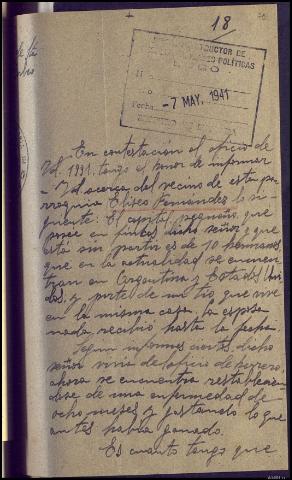 18
INSTRUCTOR DE
POLÍTICAS
Fecha - 7 MAY. 1941
En contestación al oficio de
Vd. 1991, tengo el honor de informar
a Vd acerca del vecino de esta pa-
rroquia Eliseo Fernandez lo si-
guiente: El capital, pequeño, que
posee en fincas dicho señor y que
está sin partir es de 10 hermanos
que en la actualidad se encuen-
tran en Argentina y Estados Uni-
dos, y parte de un tío que vive
en la misma casa, la espo-
nada recibió hasta la fecha.
Segun informes ciertos, dicho
señor vivia del oficio de
ahora se encuentra restablecien-
dose de una enfermedad de
ocho meses y gastando lo que
antes habia ganado.
Es cuanto tengo que